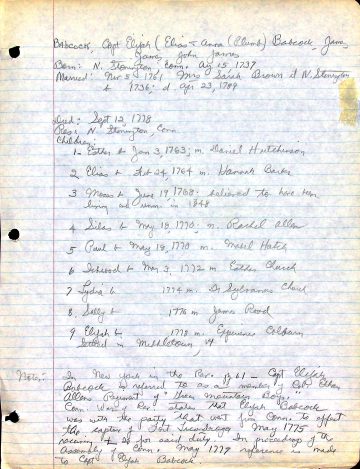 Babcock, Capt Elijah (Elias & Anna (Plumb) Babcock, James,
James, John James
Born: N. Stonington, Conn. Aug 15, 1739
Married: Nov 5, 1761 Mrs Sarah Brown of N. Stonington
b 1736; d Apr 23, 1789
Died: Sept 12, 1778
Res: N. Stonington, Conn
Children:
1 Esther b Jan 3, 1763; m. Daniel Hutchinson
2 Elias b Feb 24, 1764 m. Hannah
3 Moses b June 19, 1768. believed to have been
living in 1848
4 Silas b May 18, 1770. m. Rachel Allen
5 Paul b May 18, 1770 m. Mabel Hatch
6 b Mar 3, 1772 m Esther Church
7 Lydia b 1774 m. Dr Sylvanus Church
8 Sally b 1776 m James Rood
9 Elijah b 1778 m. Experience Colburn
Settled in Middletown, Vt
Notes: In New York in the Rev. p 61 - Capt Elijah
Babcock is referred to as a member of Col. Ethan
Allen's Regiment of "Green Mountain Boys."
Conn. War of Rev. states that Elijah Babcock
was with the party that went from Conn. to effect
the capture of Fort Ticonderoga May 1775
receiving for said duty. In proceedings of the
Assembly of Conn. May 1779 reference is made
to Capt Elijah Babcock